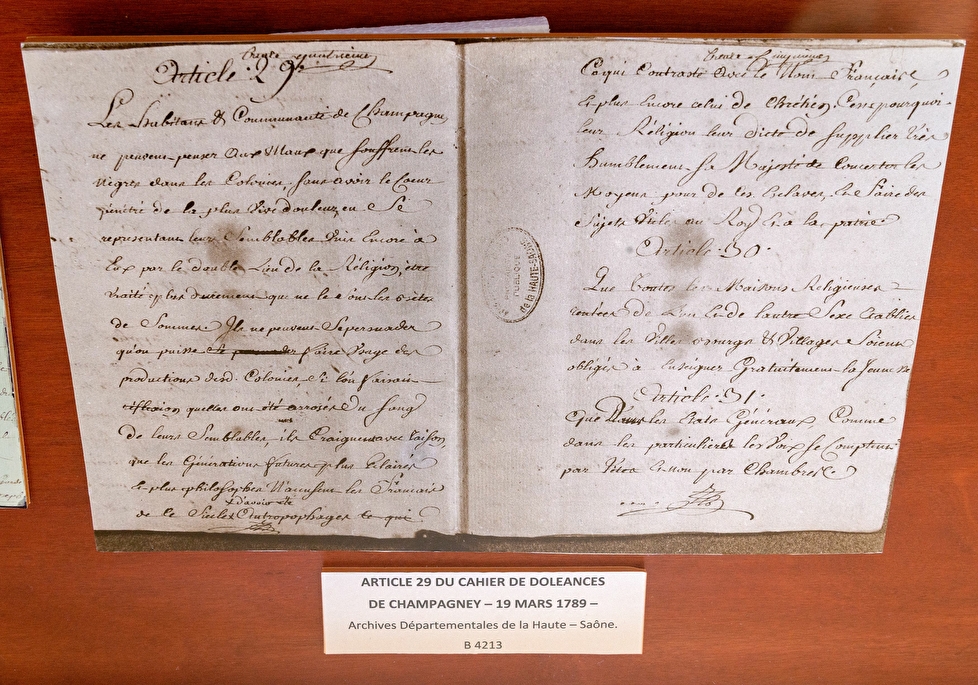 trente quatrieme
Article: 29.
Les habitans & Communauté de Champagney
ne peuvent penser aux Maux que souffrent les
Nègres dans les Colonies, sans avoir le Coeur
pénétré de la plus Vive douleur, en Se
representant leurs Semblables Unis Encore à
Eux par le double Lien de la Réligion, être
traités plus durement que ne le sont les bêtes
de Somme. Ils ne peuvent Se persuader
qu'on puisse faire Usage des
productions desd. Colonies Si l'on faisait
réflexion quelles ont été arrosées du Sang
de leurs Semblables, ils Craignent avec raison,
que les Générations futures plus Eclairées
& plus philosophes N'accusent les Français
de ce Siecle d'avoir été Antropophages ce qui
trente Cinquieme
Ce qui Contraste avec le Nom Français,
& plus Encore celui de Chrétien. C'est pourquoi
leur Réligion leur dicte de Supplier très
humblement Sa Majesté de Concerter les
Moyens pour de ces Esclaves, En faire des
Sujets Utiles au Roy & à la patrie
Article: 30.
Que Toutes les Maisons Religieuses
rentées de L'un & de L'autre Sexe Etablies
dans les Villes Bourgs & Villages Soient
obligées à Enseigner Gratuitement la Jeunesse
Article: 31.
Que Dans les Etats Généraux Comme
dans les particuliers les Voix se Comptent
par Tetes & Non par Chambres
PUBLIQUE
de la HAUTE-SAÔNE
ARTICLE 29 DU CAHIER DE DOLEANCES
DE CHAMPAGNEY – 19 MARS 1789 –
Archives Départementales de la Haute – Saône.
B 4213